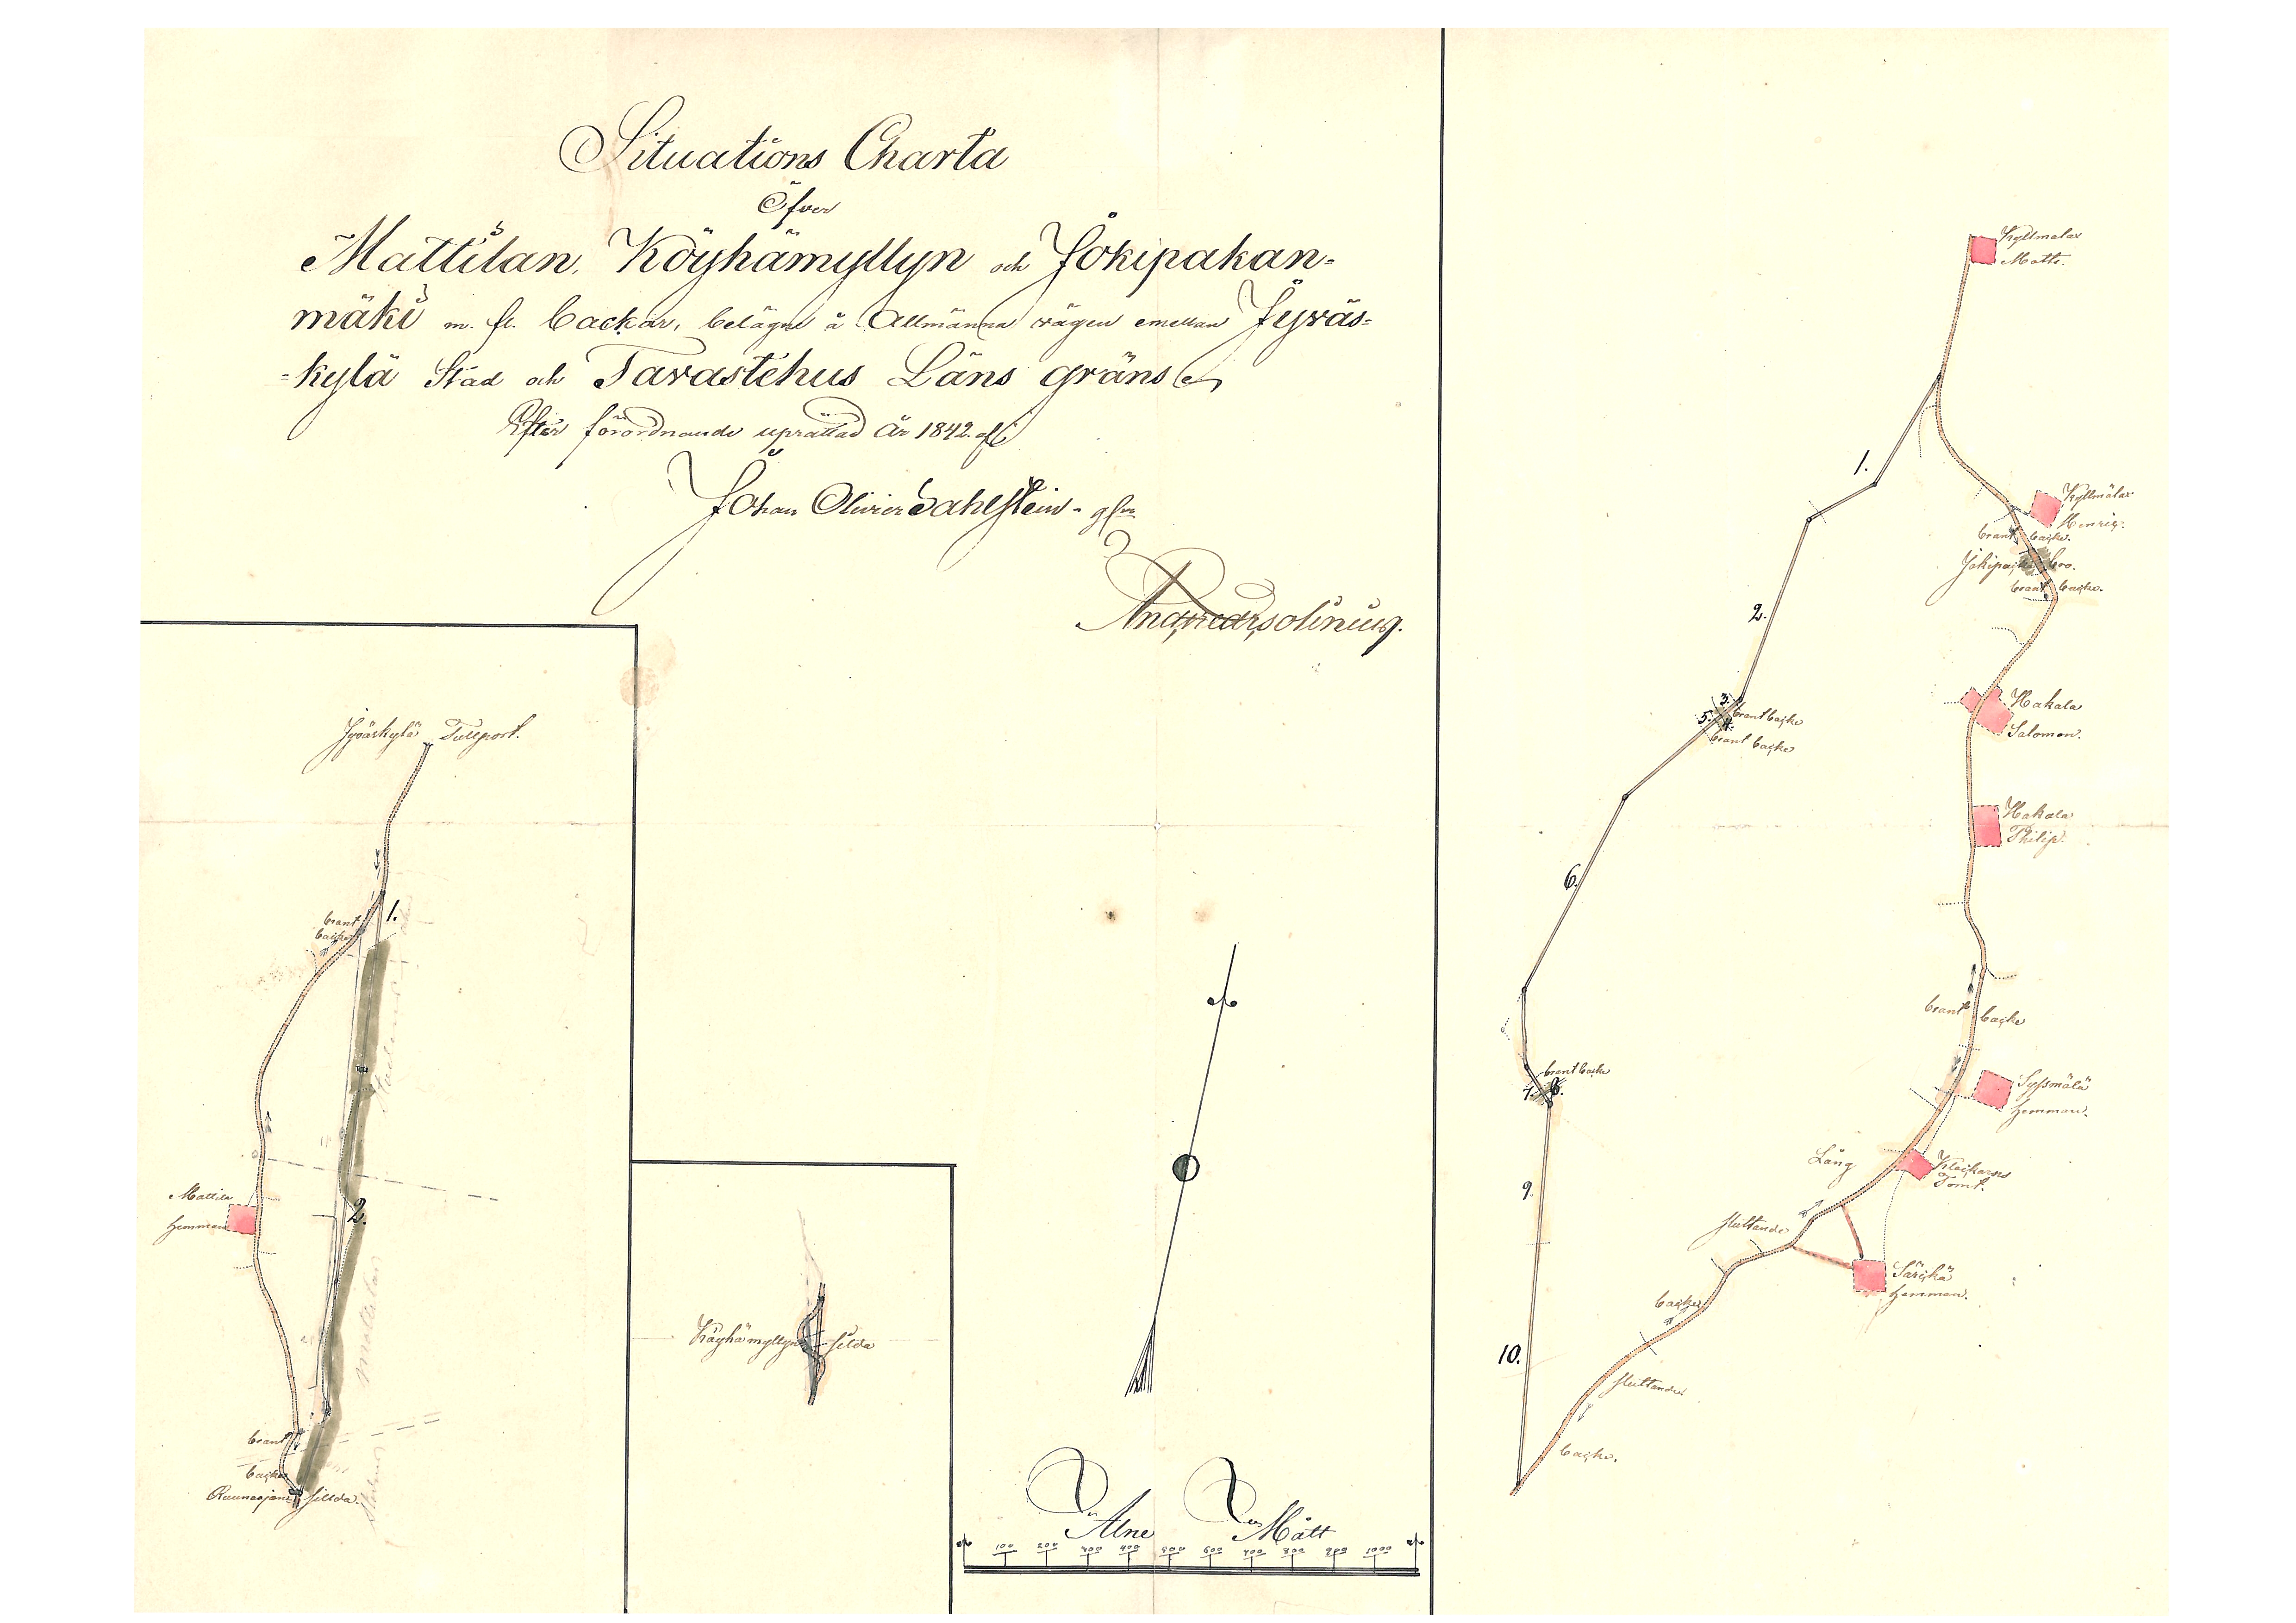 Situations Charta
Öfver
Mattilan, Köyhämyllyn och Jokipakan-
mäki m. fl. backar, belägne å Allmänna vägen emellan Jyväs=
=kylä Stad och Tavastehus Läns gräns
Efter förordnande uprättad År 1842 af
Johan Olivier Dahlstein
Jyväskylä Tullport.
1.
brant
backe
2.
Mattila
Hemman
brant
backe
Ruunaojan silda.
Köyhämyllyn silda
Alne Mått
100 200 300 400 500 600 700 800 900 1000
Kyllmälax
Matts.
1.
Kyllmälax
Henric.
brant backe.
Jokipa bro.
brant backe.
2.
Hakala
Salomon.
3.
5. 4.
brant backe
brant backe
Hakala
Philip.
6.
brant backe
brant backe
7. 8.
Syssmälä
Hemman.
Lång
Klockars
Tomt.
9.
sluttande
Särckä
Hemman.
backe
10.
sluttande
backe.